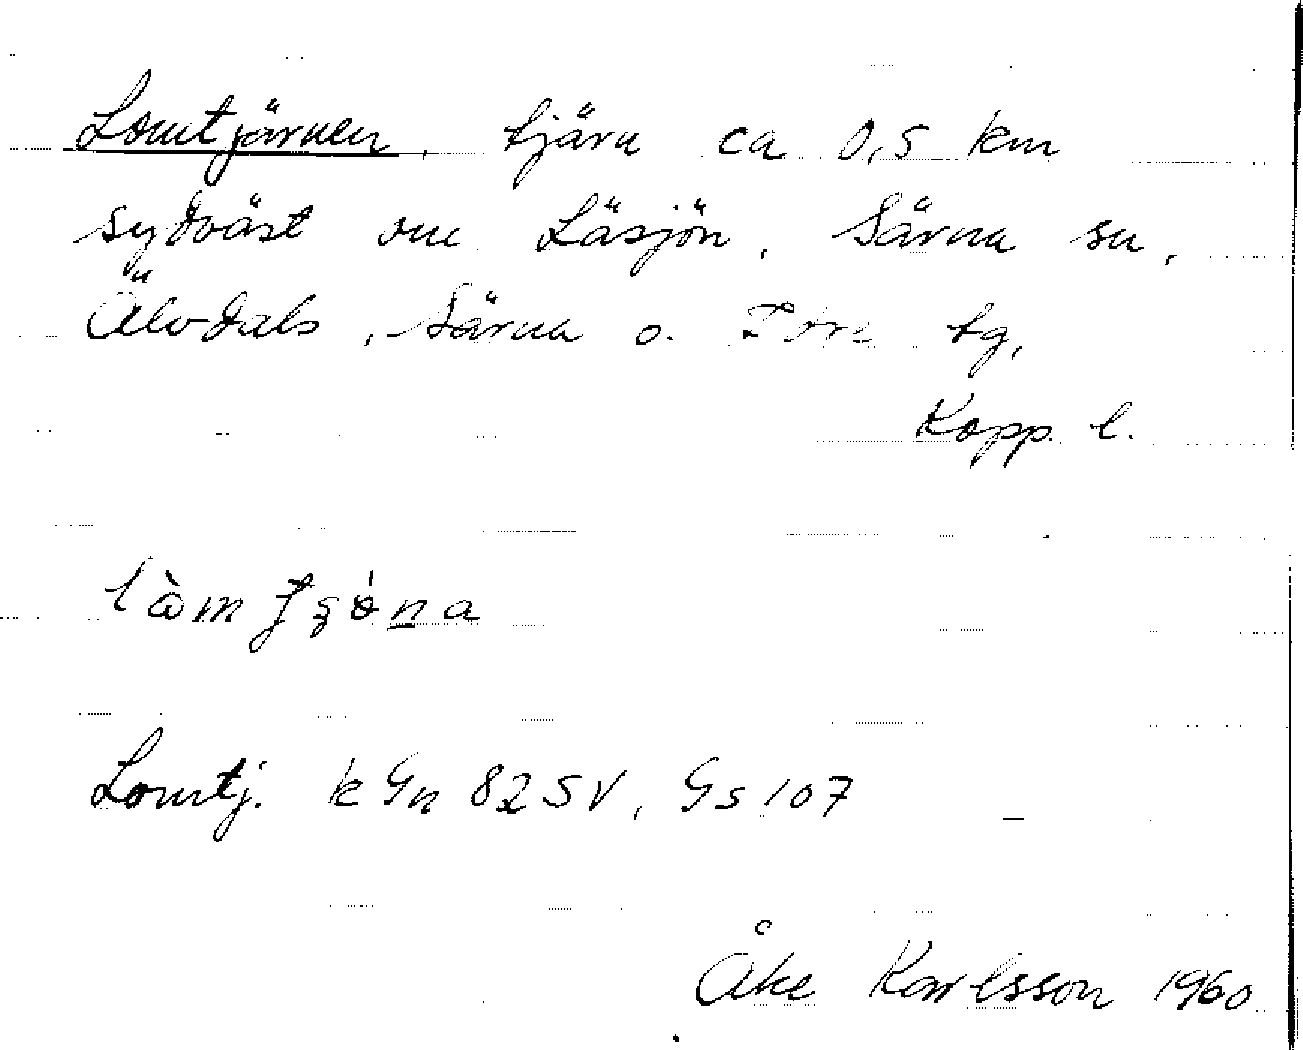 Lomtjärnen, tjärn ca 0,5 km
sydväst om Läsjön, Särna sn,
Älvdals, Särna o. Idre tg,
Kopp. l.
Lomtj. k Gn 82 SV, Gs 107
Åke Karlsson 1960